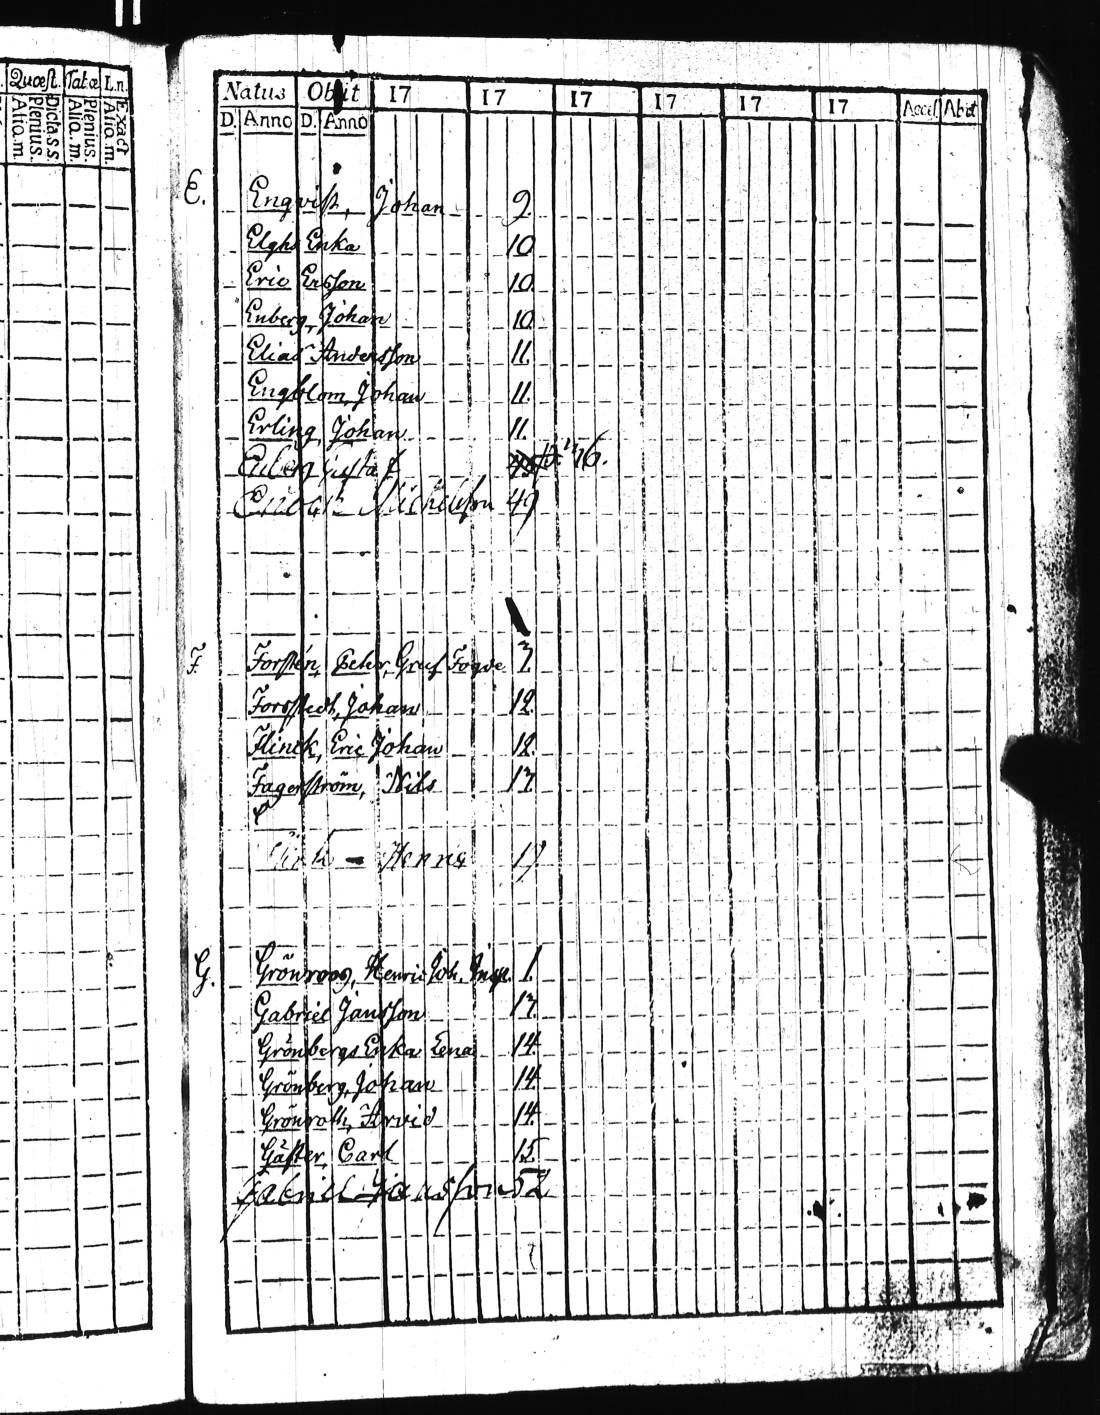 Quæst. Tabæ L.n.
Dicta s.s. Plenius. Alio.m. Plenius. Alia.m. Exact Alio.m.
Natus Obiit 17 17 17 17 17 17 Acceſ. Abit
D. Anno D. Anno
E. Enqviſt, Johan 9.
Elghs Erika 10
Eric Ersſon 10.
Enberg, Johan 10
Elias Andersſon 11.
Engblom, Johan 11.
Erling, Johan 11.
Enberg Gustaf 46.
Michelſson 49
F. Forſtén, Pehr, Gruf Fogde 7.
Forsſtedt, Johan 12.
Flinck, Eric Johan 12.
Fagerſtröm, Nils 17
Henric 19
G. Grönroos, Henric Joh. Insp. 1.
Gabriel Jansſon 17.
Grönbergs Erika Lena 14.
Grönberg, Johan 14.
Grönroth, Arvid 14.
Gäſter, Carl 15.
Gabriel Jansſon 52